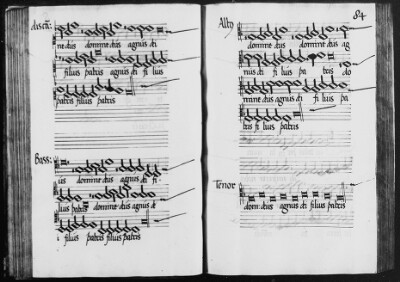 discā:
ne deus domine deus agnus dei
filius patris agnus dei filius
patris filius patris
Bass:
us domine deus agnus dei fi
lius patris domine deus agnus dei
filius patris filius patris
84
Alto
domine deus domine deus ag
nus dei fi lius pa tris do
mine deus agnus dei fi lius pa
tris fi lius patris
Tenor
dom: deus agnus dei filius patris